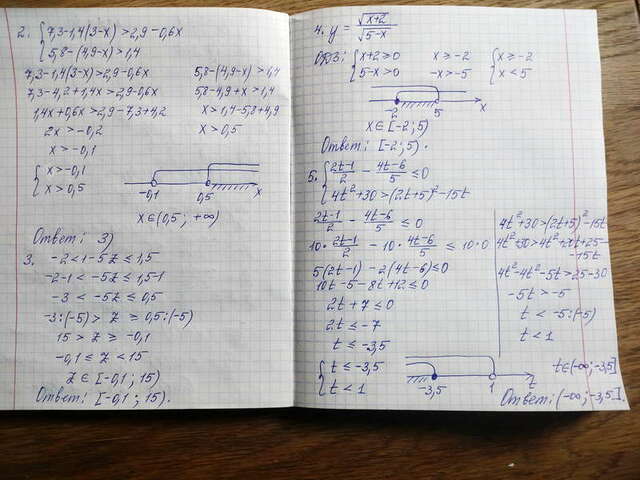 2. { 7,3-1,4(3-x) > 2,9-0,6x
5,8-(4,9-x) > 1,4
7,3-1,4(3-x) > 2,9-0,6x
7,3-4,2+1,4x > 2,9-0,6x
1,4x+0,6x > 2,9-7,3+4,2
2x > -0,2
x > -0,1
5,8-(4,9-x) > 1,4
5,8-4,9+x > 1,4
x > 1,4-5,8+4,9
x > 0,5
{ x > -0,1
x > 0,5
-0,1 0,5 x
x∈(0,5; +∞)
Ответ: 3)
3. -2 < 1-5z ≤ 1,5
-2-1 < -5z ≤ 1,5-1
-3 < -5z ≤ 0,5
-3:(-5) > z ≥ 0,5:(-5)
15 > z ≥ -0,1
-0,1 ≤ z < 15
z ∈ [-0,1; 15)
Ответ: [-0,1; 15).
4. y = √(x+2) / √(5-x)
ОДЗ: { x+2 ≥ 0 x ≥ -2 { x ≥ -2
5-x > 0 -x > -5 x < 5
-2 5 x
x∈[-2; 5)
Ответ: [-2; 5).
5. { (2t-1)/2 - (4t-6)/5 ≤ 0
4t²+30 > (2t+5)²-15t
(2t-1)/2 - (4t-6)/5 ≤ 0
10·(2t-1)/2 - 10·(4t-6)/5 ≤ 10·0
5(2t-1)-2(4t-6) ≤ 0
10t-5-8t+12 ≤ 0
2t+7 ≤ 0
2t ≤ -7
t ≤ -3,5
4t²+30 > (2t+5)²-15t
4t²+30 > 4t²+20t+25-
-15t
4t²-4t²-5t > 25-30
-5t > -5
t < -5:(-5)
t < 1
{ t ≤ -3,5
t < 1
-3,5 1 t
t∈(-∞; -3,5]
Ответ: (-∞; -3,5].